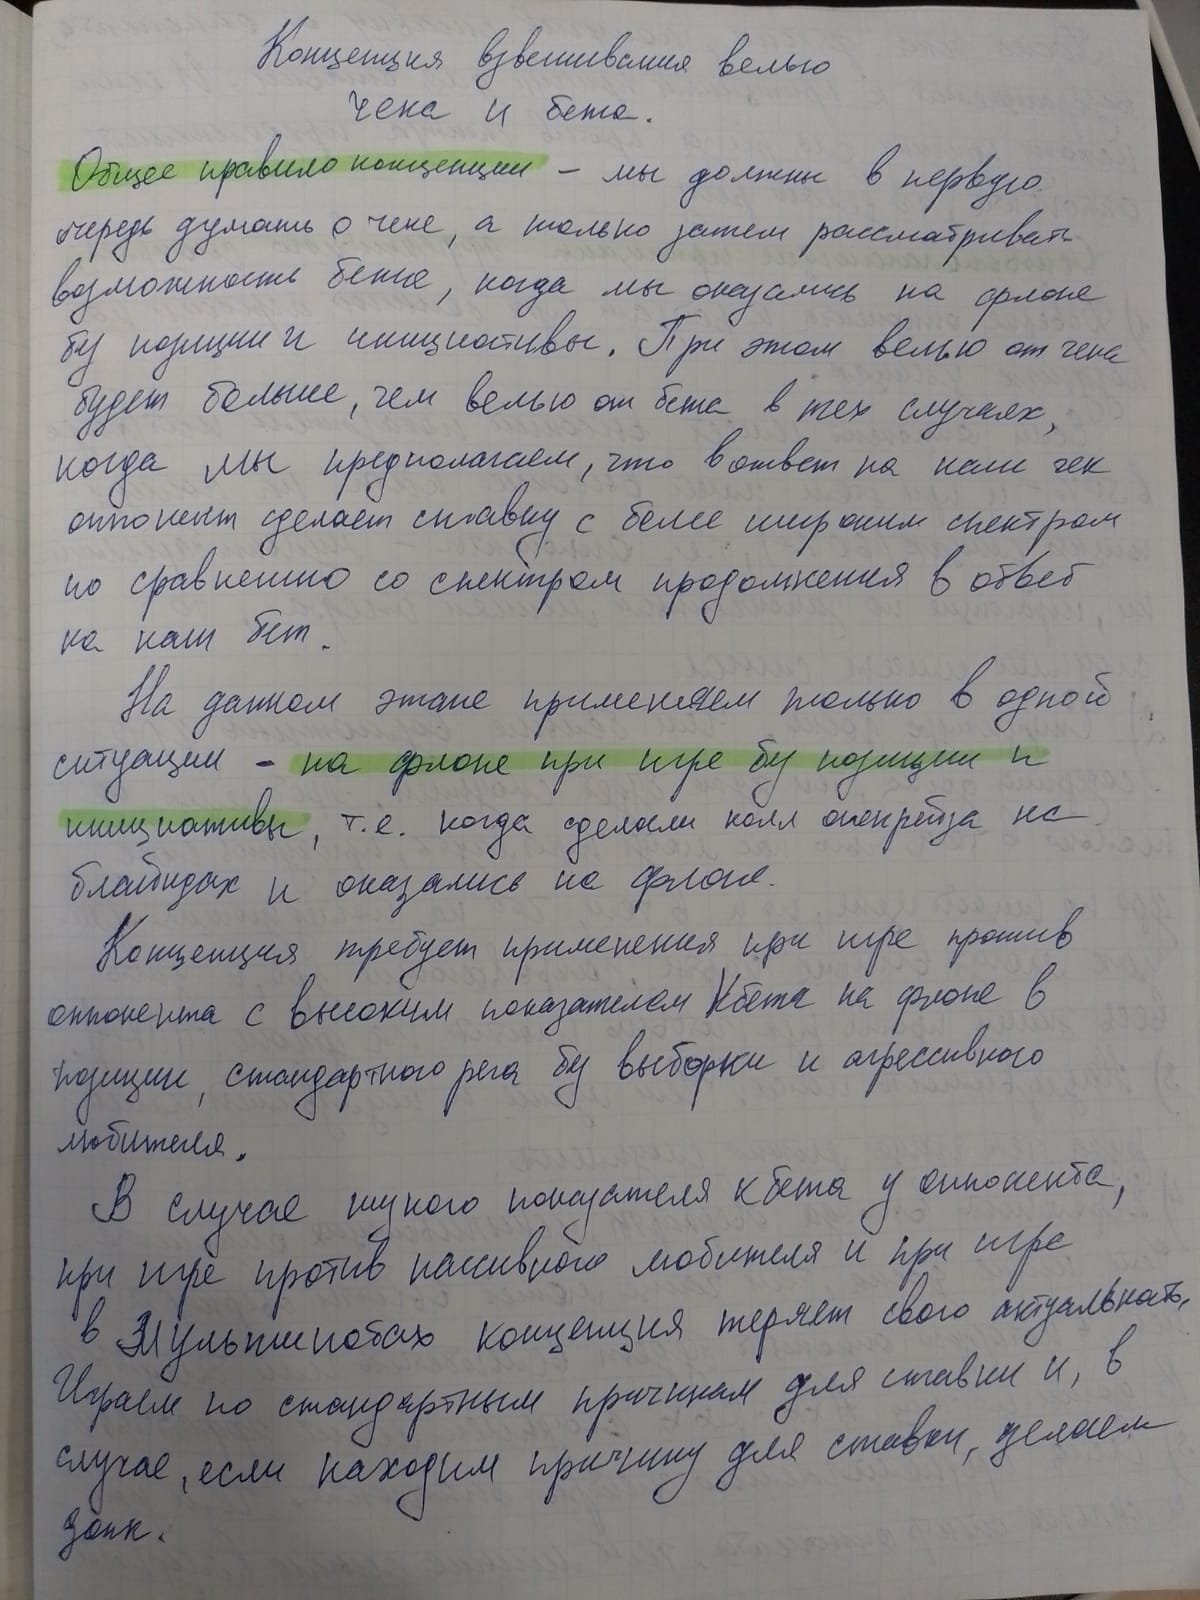 Концепция взвешивания велью
чека и бета.
Общее правило концепции – мы должны в первую
очередь думать о чеке, а только затем рассматривать
возможность бета, когда мы оказались на флопе
бу позиции и инициативы. При этом велью от чека
будет больше, чем велью от бета в тех случаях,
когда мы предполагаем, что в ответ на наш чек
оппонент сделает ставку с более широким спектром
по сравнению со спектром продолжения в ответ
на наш бет.
На данном этапе применяем только в одной
ситуации – на флопе при игре бу позиции и
инициативы, т.е. когда сделали колл опенрейза на
блайндах и оказались на флопе.
Концепция требует применения при игре против
оппонента с высоким показателем Кбета на флопе в
позиции, стандартного рега бу выборки и агрессивного
любителя.
В случае низкого показателя кбета у оппонента,
при игре против пассивного любителя и при игре
в Мультипотах концепция теряет свою актуальность.
Играем по стандартным причинам для ставки и, в
случае, если находим причину для ставки, делаем
донк.